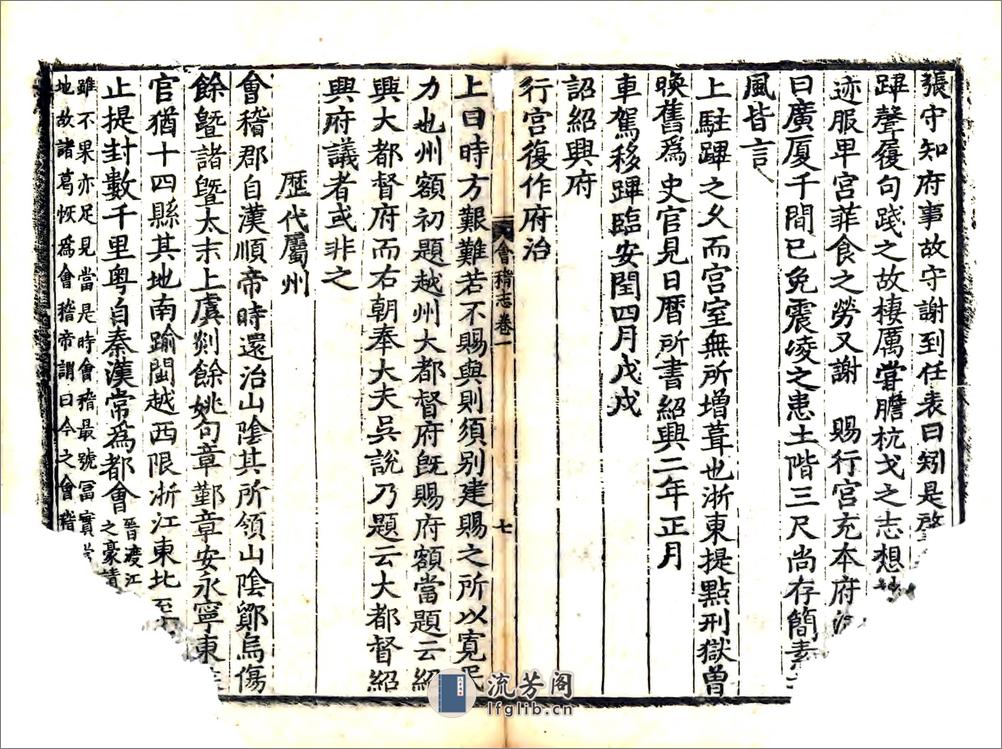 張守知府事故守謝到任表曰矧是啓
蹕聲履句踐之故棲厲甞膽枕戈之志想
迹服卑宮菲食之勞又謝 賜行宮充本府治
曰廣厦千間已免震凌之患土階三尺尚存簡素
風皆言
上駐蹕之久而宮室無所增葺也浙東提點刑獄曾
㬇舊為史官見日曆所書紹興二年正月
車駕移蹕臨安閏四月戊戌
詔紹興府
行宮復作府治
會稽志卷一
七
上曰時方艱難若不賜與則須别建賜之所以寬民
力也州額初題越州大都督府既賜府額當題云紹
興大都督府而右朝奉大夫吳說乃題云大都督紹
興府議者或非之
歷代屬州
會稽郡自漢順帝時還治山陰其所領山陰鄮烏傷
餘暨諸暨太末上虞剡餘姚句章鄞章安永寧東
官猶十四縣其地南踰閩越西限浙江東北至
止提封數千里粤自秦漢常為都會晉渡江之豪請
雖不果亦足見當是時會稽最號冨實
地故諸葛恢為會稽帝謂曰今之會稽
流芳阁
lfglib.cn